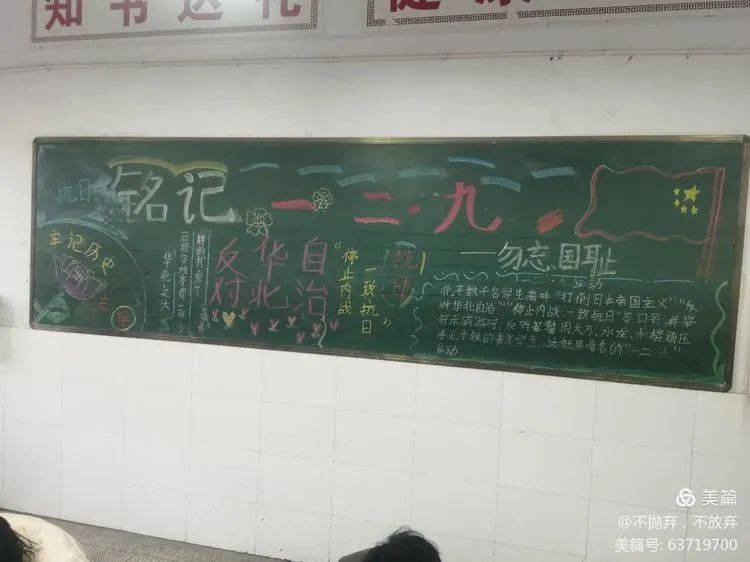 知书达礼
健康
抗日
铭记一二·九
牢记历史
华北之大
已经安放不得一张
静的书桌了
反对华北自治
“停止内战
一致抗日”
抗日
——勿忘国耻
运动
北平数千名学生高呼“打倒日本帝国主义”“反
对华北自治”“停止内战、一致抗日”等口号，并举
行示威游行，反对 用大刀、水龙、木棍镇压
手无寸铁的青年学生，这就是著名的“一二·九”
运动
美篇
@不抛弃，不放弃
美篇号: 63719700